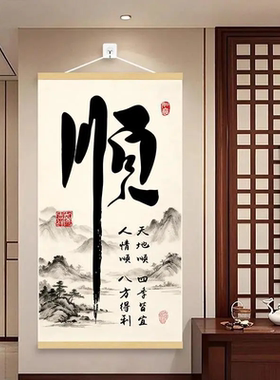 順
天地順 四季皆宜
人情順 八方得利